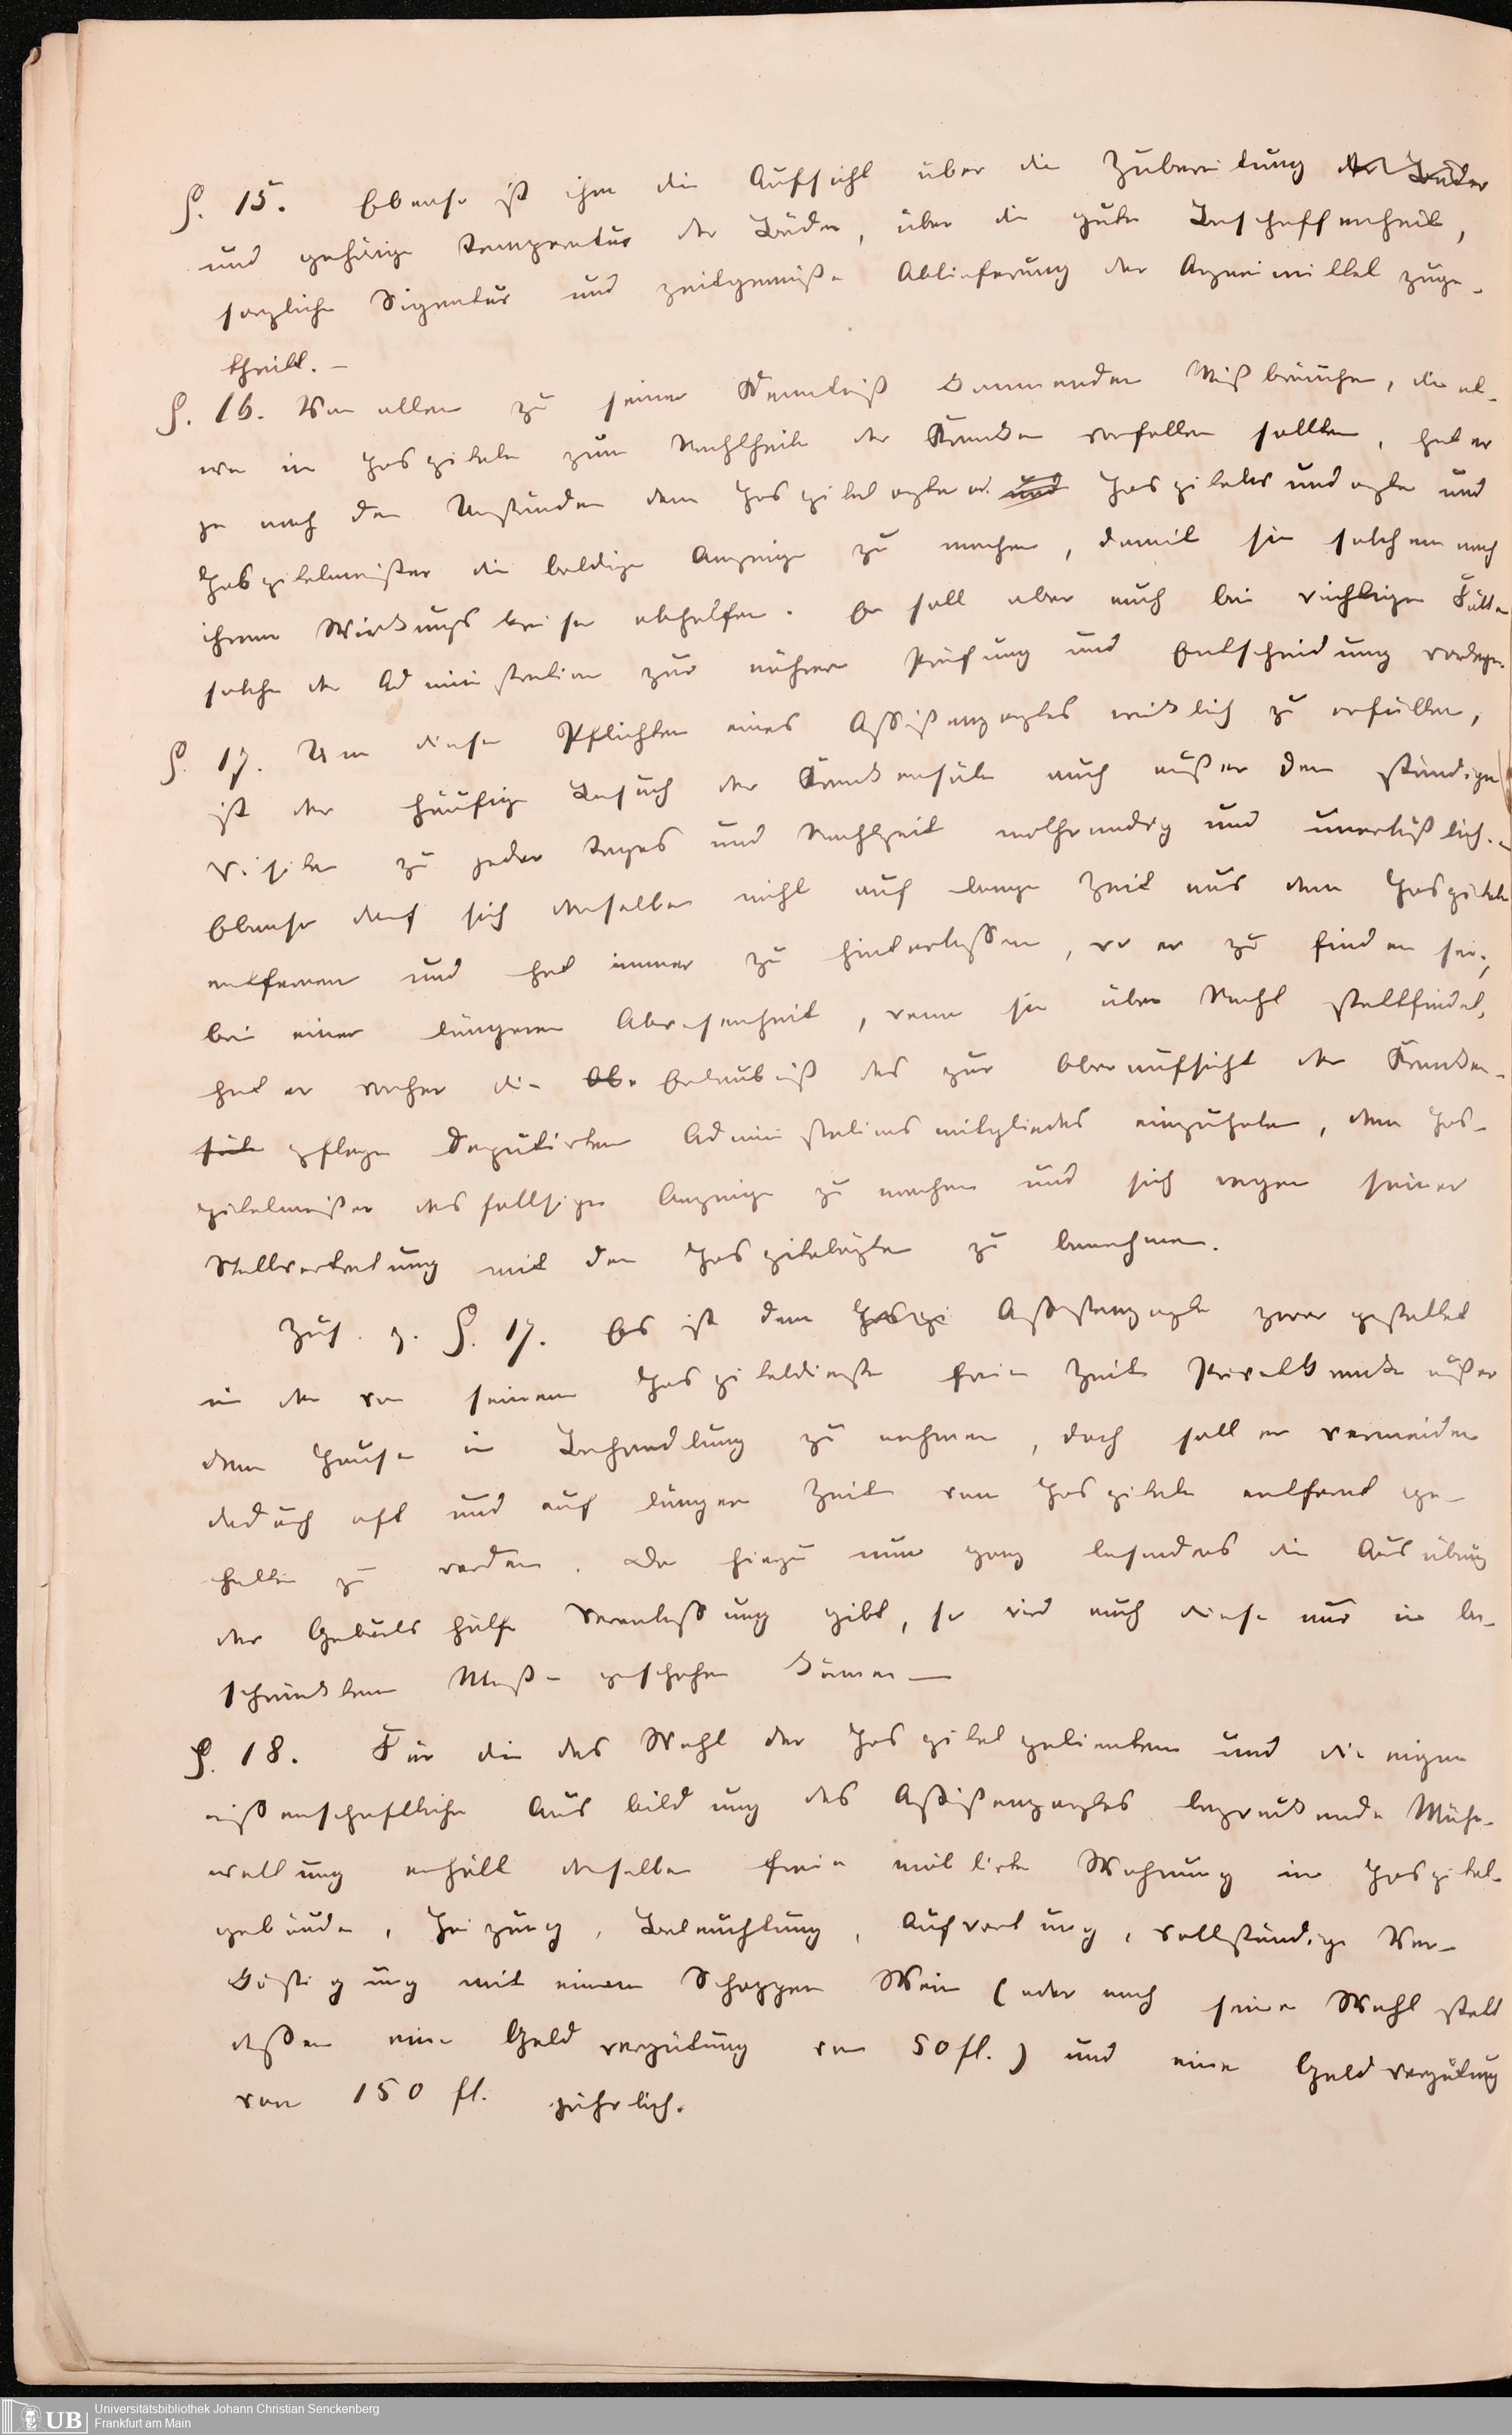 §. 15. Ebenso ist ihm die Aufsicht über die Zubereitung der Bäder
und gehörige Temperatur der Bäder, über die gute Beschaffenheit,
sorgliche Signatur und zeitgemäße Ablieferung der Arzneimittel zuge-
theilt. –
§. 16. Von allen zu seiner Kenntniß kommenden Mißbräuchen, die et-
wa im Hospitale zum Nachtheile der Kranken vorfallen sollten, hat er
je nach den Umständen dem Hospitalarzte od. und Hospitalwundarzte und
Hospitalmeister die baldige Anzeige zu machen, damit sie solchem nach
ihrem Wirkungskreise abhelfen. Er soll aber auch bei wichtigen Fällen
solche der Administration zur nähern Prüfung und Entscheidung vorlegen.
§. 17. Um diese Pflichten eines Assistenzarztes wirklich zu erfüllen,
ist der häufige Besuch der Krankensäle auch außer den ständigen
Visiten zu jeder Tages und Nachtzeit nothwendig und unerläßlich. –
Ebenso darf sich derselbe nicht auf lange Zeit aus dem Hospitale
entfernen und hat immer zu hinterlassen, wo er zu finden sei;
bei einer längeren Abwesenheit, wenn sie über Nacht stattfindet,
hat er vorher die Ob. Erlaubniß des zur Oberaufsicht der Kranken-
säle pflege deputirten Administrationsmitgliedes einzuholen, dem Hos-
pitalmeister desfallsige Anzeige zu machen und sich wegen seiner
Stellvertretung mit den Hospitalärzten zu benehmen.
Zus. z. §. 17. Es ist dem Hospi Assistenzarzte zwar gestattet
in der von seinem Hospitaldienste freien Zeit Privatkranke außer
dem Hause in Behandlung zu nehmen, doch soll er vermeiden
dadurch oft und auf längere Zeit vom Hospitale entfernt ge-
halten zu werden. Da hiezu nun ganz besonders die Ausübung
der Geburtshülfe Veranlassung gibt, so wird auch diese nur in be-
schränktem Maße geschehen können –
§. 18. Für die das Wohl der Hospitalpatienten und die eigene
wissenschaftliche Ausbildung des Assistenzarztes bezweckende Mühe-
waltung erhält derselbe freie möblirte Wohnung im Hospital-
gebäude, Heizung, Beleuchtung, Aufwartung, vollständige Ver-
köstigung mit einem Schoppen Wein (oder nach seiner Wahl statt
dessen eine Geldvergütung von 50 fl.) und eine Geldvergütung
von 150 fl. jährlich.
UB Universitätsbibliothek Johann Christian Senckenberg
Frankfurt am Main